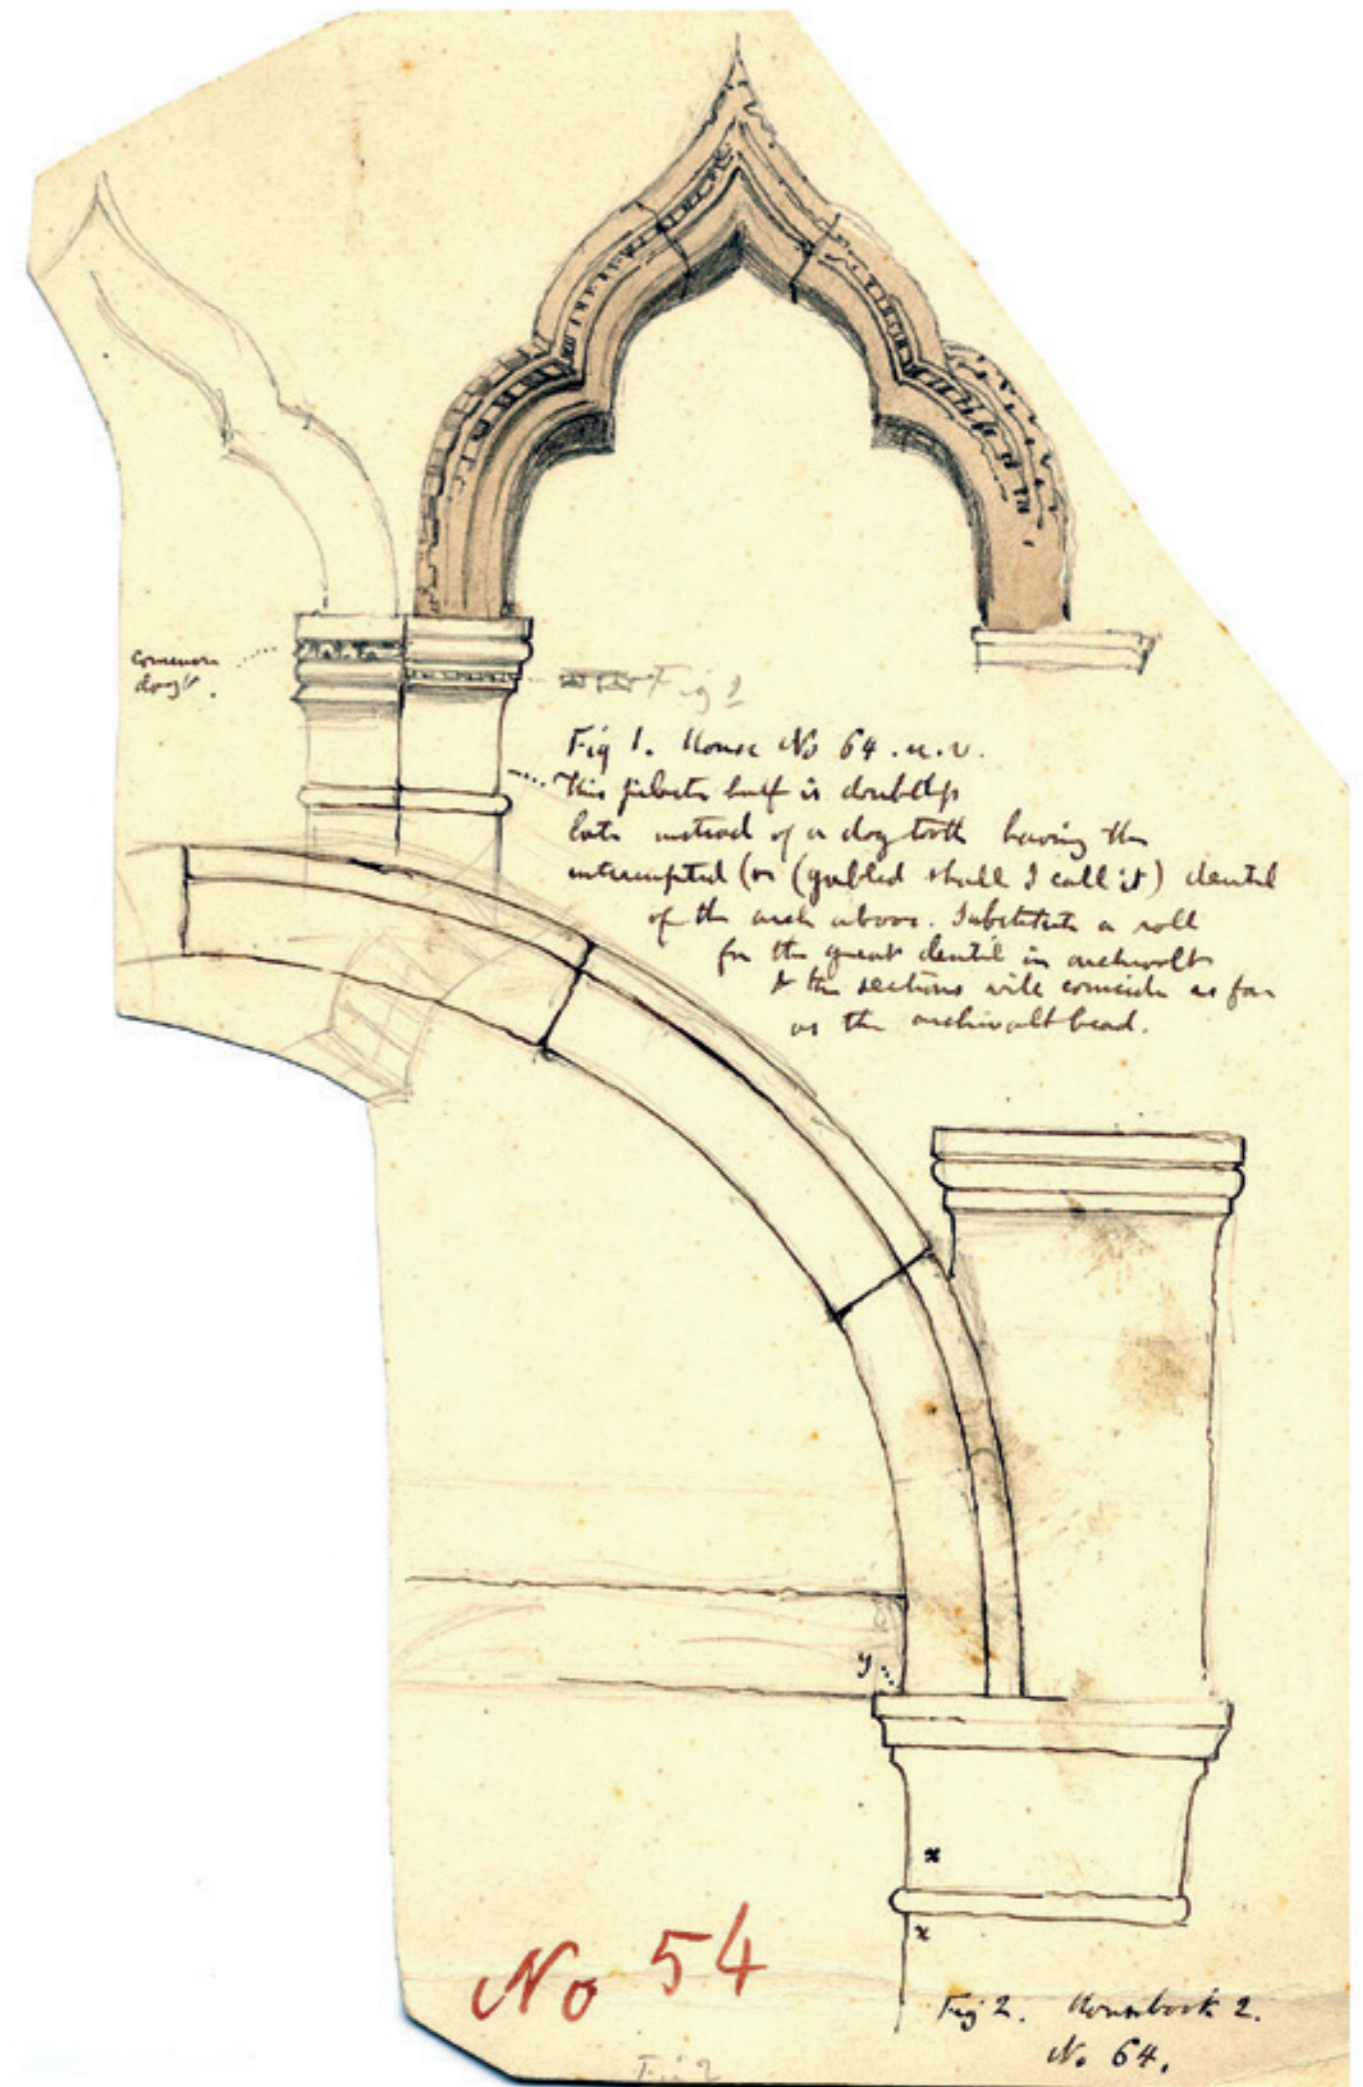 common
dog t.
Fig 2
Fig 1. House No 64. u. v.
This pilaster half is doubled
late instead of a dog tooth having the
interrupted (or (gabled shall I call it) dentil
of the arch above. Substitute a roll
for the great dentil in archivolt
& the sections will coincide as far
as the archivolt bead.
y
x
x
No 54
Fig 2. Housebook 2.
No 64.
Fig 2